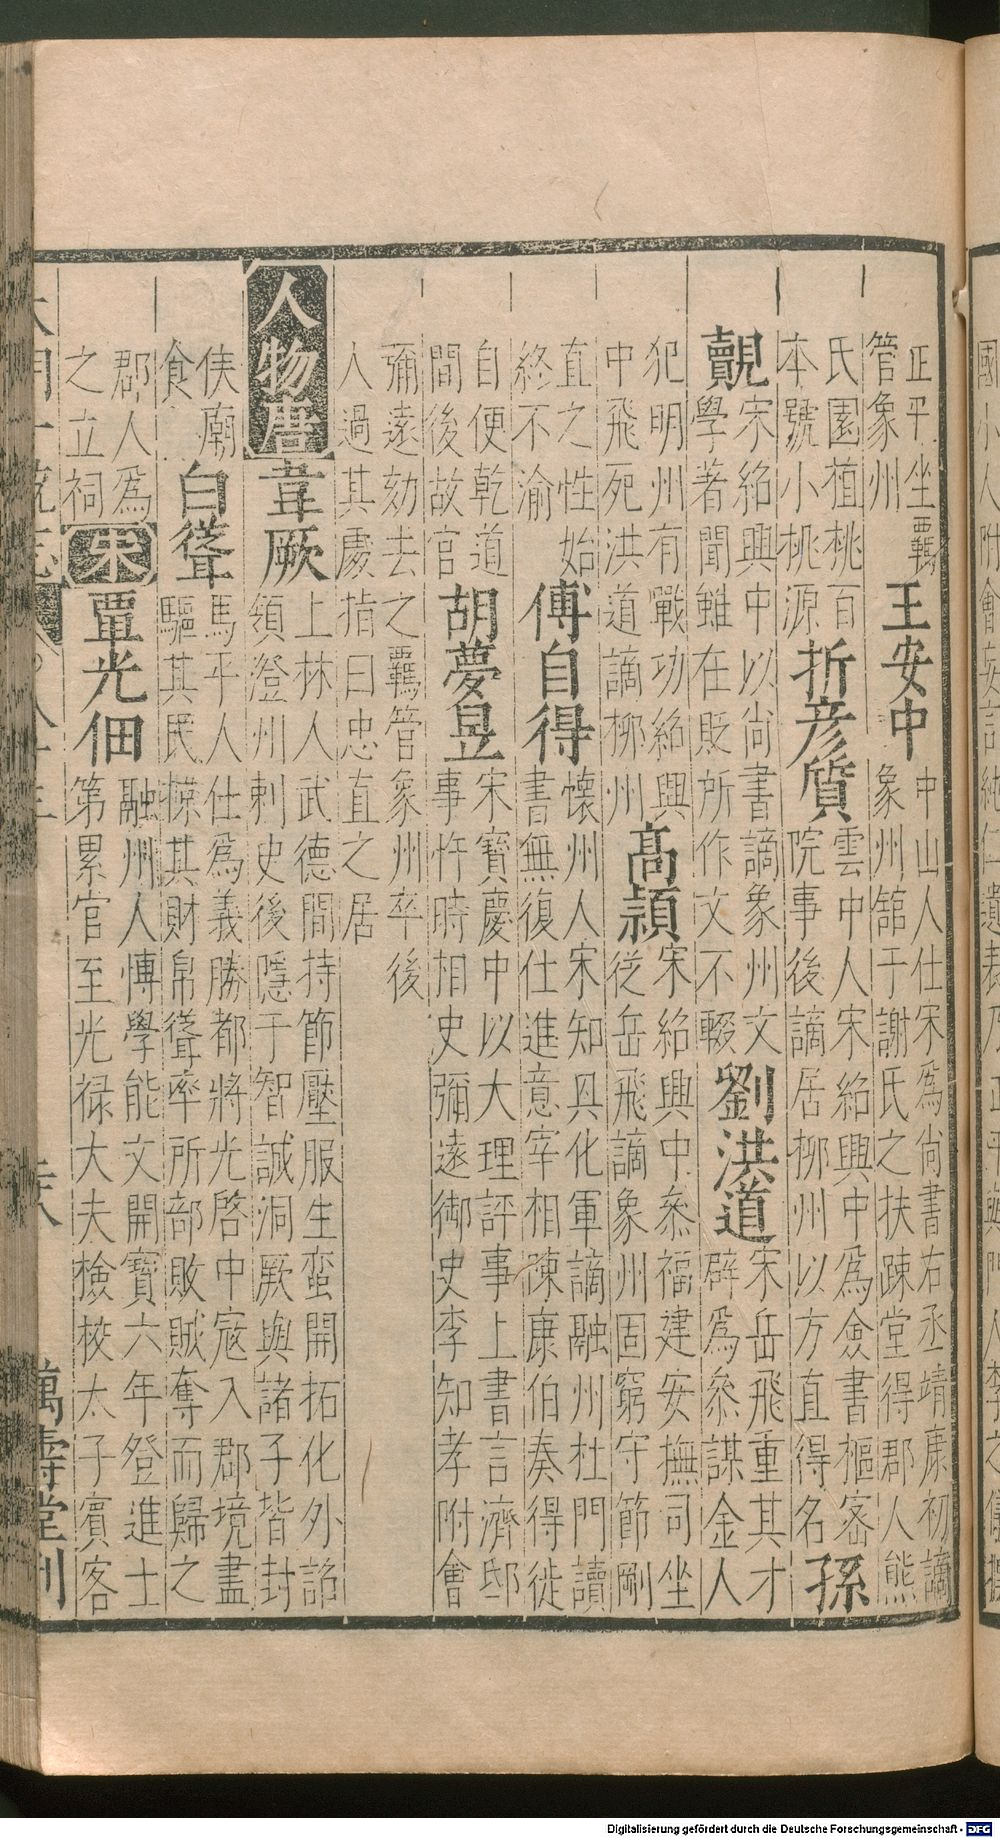 正平坐覊管象州王安中中山人仕宋為尚書右丞靖康初謫象州舘于謝氏之扶踈堂得郡人熊
氏園植桃百本號小桃源折彦質雲中人宋紹興中為僉書樞宻院事後謫居柳州以方直得名孫
覿宋紹興中以尚書謫象州文學著聞雖在貶所作文不輟劉洪道宋岳飛重其才辟為叅謀金人
犯明州有戰功紹興中飛死洪道謫柳州高頴宋紹興中叅福建安撫司坐從岳飛謫象州固窮守節剛
直之性始終不渝傅自得懷州人宋知興化軍謫融州杜門讀書無復仕進意宰相陳康伯奏得徙
自便乾道間後故官胡夢昱宋寶慶中以大理評事上書言濟邸事忤時相史彌遠御史李知孝附會
彌遠劾去之覊管象州卒後人過其處指曰忠直之居
人物唐韋厥上林人武德間持節壓服生蛮開拓化外詔領澄州刺史後隱于智誠洞厥與諸子皆封
侯廟食白聳馬平人仕為義勝都將光啓中宼入郡境盡驅其民掠其財帛聳率所部敗賊奪而歸之
郡人為之立祠宋覃光佃融州人博學能文開寶六年登進士第累官至光禄大夫檢校太子賔客
萬壽堂刊
Digitalisierung gefördert durch die Deutsche Forschungsgemeinschaft - DFG